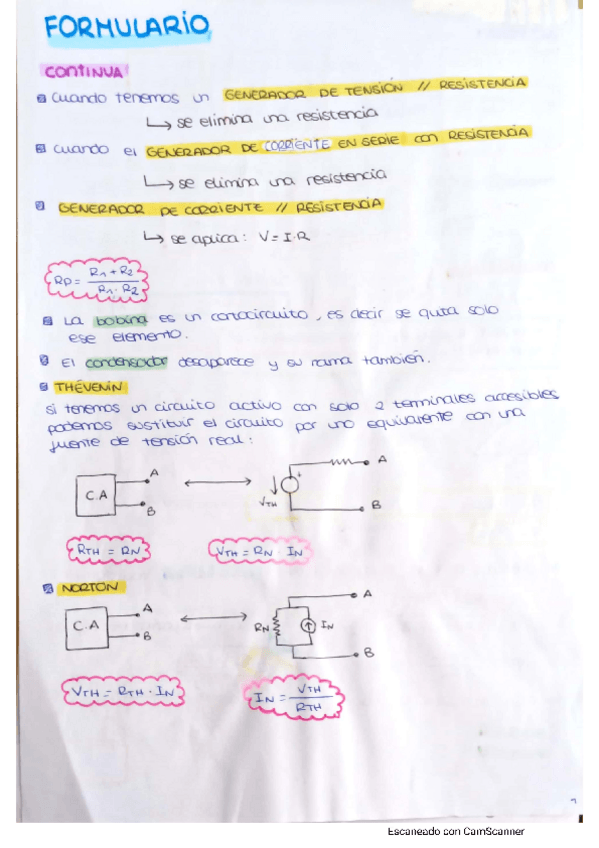 FORMULARIO
CONTINUA
Cuando tenemos un GENERADOR DE TENSIÓN // RESISTENCIA
↳ se elimina una resistencia
Cuando el GENERADOR DE CORRIENTE EN SERIE con RESISTENCIA
↳ se elimina una resistencia
GENERADOR DE CORRIENTE // RESISTENCIA
↳ se aplica: V = I·R
RP = R1 + R2 / R1 · R2
La bobina es un corrocircuito, es decir se quita solo
ese elemento.
El condensador desaparece y su rama también.
THÉVENIN
Si tenemos un circuito activo con solo 2 terminales accesibles
podemos sustituir el circuito por uno equivalente con una
fuente de tensión real:
C.A A B
VTH + A B
RTH = RN
VTH = RN · IN
NORTON
C.A A B
RN IN A B
VTH = RTH · IN
IN = VTH / RTH
Escaneado con CamScanner